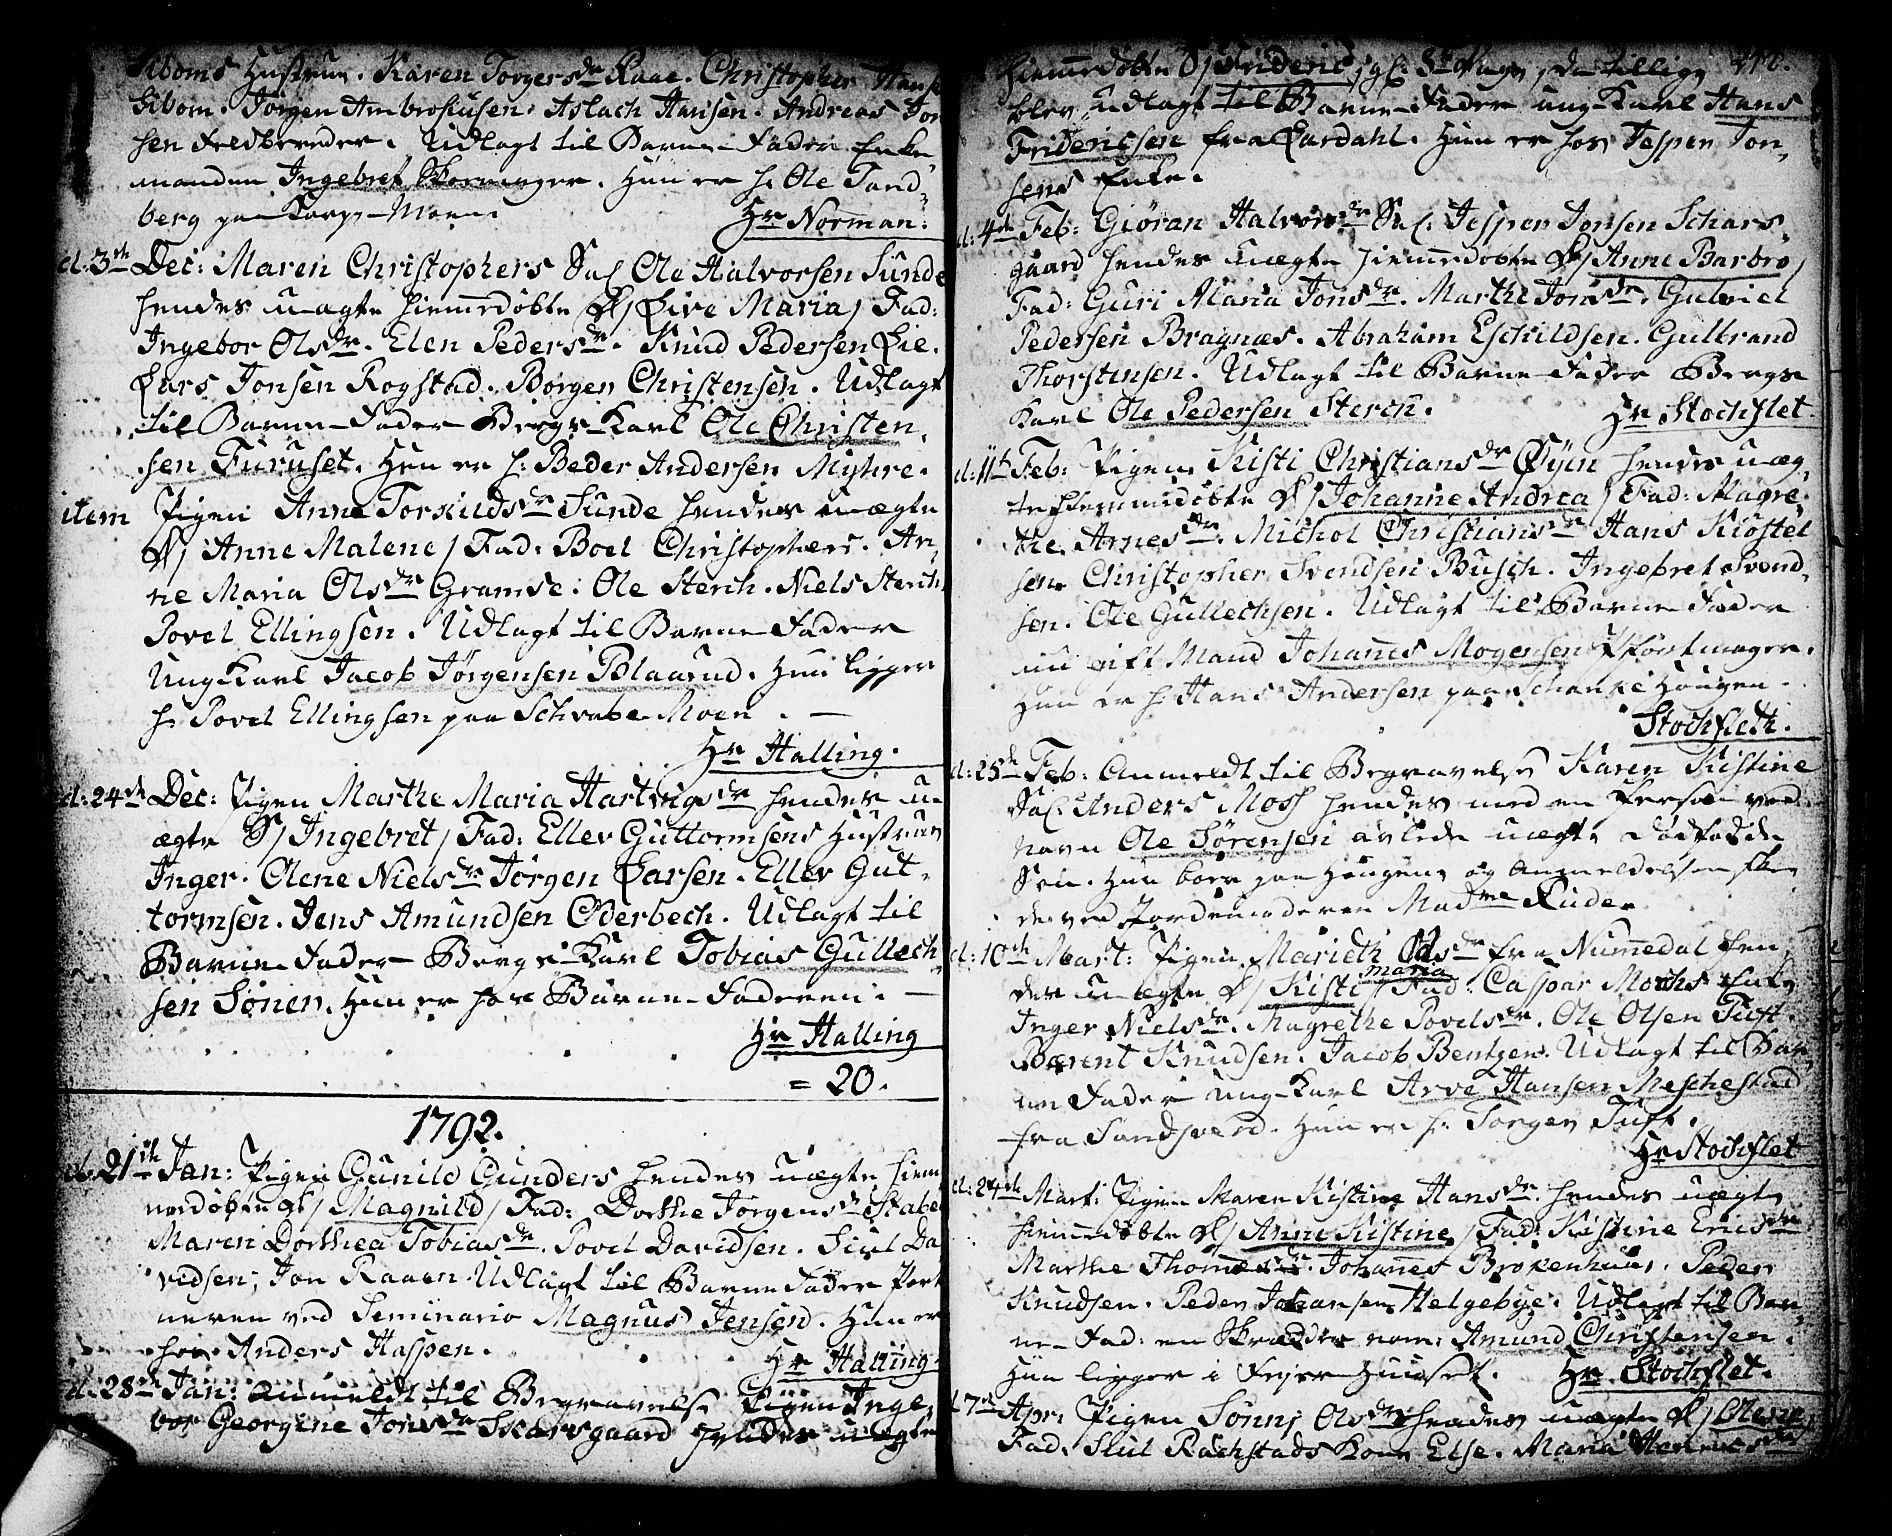 Siboms Hustrue. Karen Torgersdr Raae. Christopher Hans
Sibom. Jørgen Ambrosiusen. Aslach Hansen. Andreas Jon
sen Feldbereder. Udlagt til Barne-Fader Enke
manden Ingebret . Hun er h: Ole Sand
berg paa Moen.
Hr Norman.
d: 3th Dec: Maren Christophers Sal Ole Halvorsen Sunde
hendes uægte hiemedøbte D/ Live Maria/ Fad:
Ingebor Olsdr. Elen Pedersdr. Knud Pedersen Lie.
Lars Jonsen Rogstad. Børgen Christensen. Udlagt
til Barne-Fader Bergs-Karl Ole Christen
sen Furuset. Hun er h: Peder Andersen Myhre.
item Pigen Anne Torkildsdr Sunde hendes uægte
D/ Anne Malene/ Fad: Boel Christophers. An
ne Maria Olsdr Gramse. Ole Sterch. Niels Sterch
Povel Ellingsen. Udlagt til Barne-Fader
Ung Karl Jacob Jørgensen Blaarud. Hun ligger
h: Povel Ellingsen paa Schrabe-Moen. —
Hr Halling.
d: 24de Dec: Pigen Marthe Maria Hartvigsdr hendes u-
ægte S/ Ingebret/ Fad: Eller Guttormsens Hustrue
Inger. Olene Nielsdr Jørgen Larsen. Eller Gut-
tormsen. Jens Amundsen Oderbech. Udlagt til
Barne-Fader Bergs-Karl Tobias Gullech
sen Sønen. Hun er hos Barne-Faderen. —
Hr Halling
= 20.
1792.
d: 21th Jan: Pigen Gunild Gunders hendes uægte hiem
medøbte D/ Magnild/ Fad: Dorthe Jørgensdr Stabel
Maren Dorthea Tobiasdr. Povel Davidsen. Siul Da
vidsen, Jon Raaen. Udlagt til Barne Fader Port
neren ved Seminario Magnus Jensen. Hun er
hos Anders Haspen.
Hr Halling.
d: 28de Jan: Anmeldt til Begravelse Pigen Inge
bor Georgine Jonsdr Skarsgaard hendes uægte
hiemedøbte S/ Frideric, 8te Dage, da tillige
blev udlagt til Barne-Fader ung Karl Hans
Fridericsen fra Lardahl. Hun er hos Jesper Jon
sens Enke.
d: 4de Feb: Giøran Halvorsdr Sal. Jesper Jonsen Schars
gaard hendes uægte hiemedøbte D/ Anne Barbro/
Fad: Guri Maria Jonsdr. Marthe Jonsdr. Gulviel
Pedersen Bragnæs. Abraham Eschildsen. Gulbrand
Thorstensen. Udlagt til Barne-Fader Bergs
Karl Ole Pedersen Sterch.
Hr Stochflet.
d: 11te Feb: Pigen Kisti Christiansdr Øyen hendes uæg
te hiemmedøbte D/ Johanne Andrea/ Fad: Magre
the Arnesdr. Michol Christiansdr Hans Kiøstel
sen. Christopher Svendsen Busch. Ingebret Svend
sen. Ole Gullechsen. Udlagt til Barne Fader
en gift Mand Johannes Mogensen .
Hun er h: Hans Andersen paa Haugen.
Stochfleth.
d: 25de Feb: Anmeldt til Begravelse Karen Kistine
Sal. Anders Moss hendes med en Person ved
navn Ole Sørensen avlede uægte dødfødde
Søn. Hun boer paa Haugen, og Anmeldelsen ske
de ved Jordemoderen Madme Ruder
d: 10de Mart: Pigen Marieth Olsdr fra Numedal hen
des uægte D/ Kisti Maria/ Fad: Caspar Mochs Enke
Inger Nielsdr. Magrethe Povelsdr. Ole Olsen Tuft.
Bærent Knudsen. Jacob Bentzen. Udlagt til Bar
ne Fader Ung-Karl Arve Hansen Meschestad
fra Sandsværd. Hun er h: Torgen Tuft.
Hr Stochflet
d: 24de Mart: Pigen Maren Kistine Hansdr. hendes uægte
hiemedøbte D/ Anne Kistine/ Fad: Kistine Ericsdr
Marthe Thomesdr. Johannes Brokenhuus. Peder
Knudsen. Peder Johansen Helgebye. Udlagt til Bar
ne-Fad: en Skrædder nom: Amund Christensen.
Hun ligger i Huuset. Hr Stochflet.
d 7de Apr: Pigen Sønni Olsdr hendes uægte D/ Olene,
Fad. Siul Rachstads Kone Else. Maria